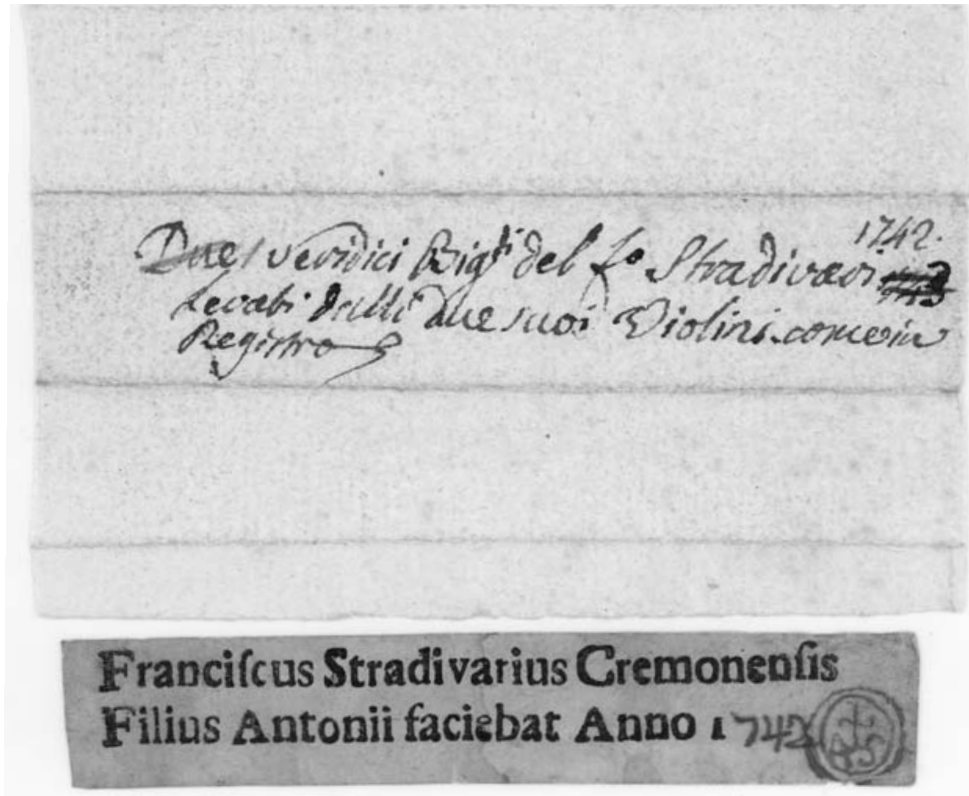 1742.
Due veridici Bigti del Fo Stradivari
Levati dalli Due suoi Violini come in
Registro
Franciſcus Stradivarius Cremonenſis
Filius Antonii faciebat Anno 1742
A S